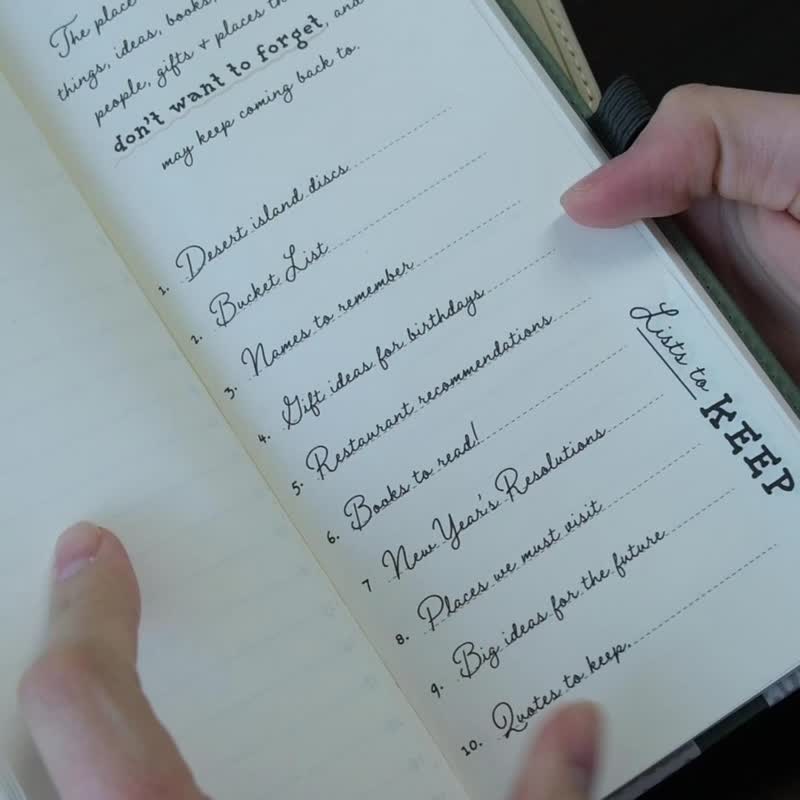 The place
things, ideas, books,
people, gifts + places
don't want to forget, and
may keep coming back to.
1. Desert island discs
2. Bucket List
3. Names to remember
4. Gift ideas for birthdays
5. Restaurant recommendations
6. Books to read!
7 New Year's Resolutions
8. Places we must visit
9. Big ideas for the future
10. Quotes to keep.
Lists to
KEEP